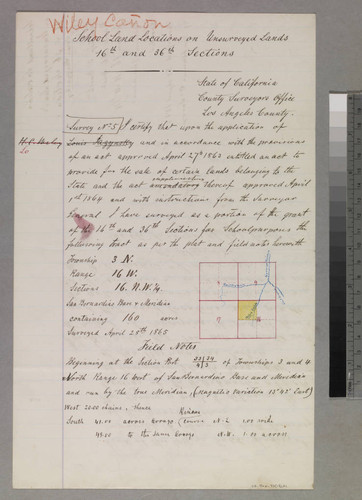 Wiley Cañon
School Land Locations on Unsurveyed Lands
16th and 36th Sections
State of California
County Surveyors Office
Los Angeles County.
Survey No 5 I certify that upon the application of
and in accordance with the provisions
of an act approved April 27th 1863 entitled an act to
provide for the sale of certain lands belonging to the
supplementary
State and the act amendatory thereof approved April
1st 1864 and with instructions from the Surveyor
General I have surveyed as a portion of the grant
of the 16th and 36th Sections for School purposes the
following tract as per the plot and field notes herewith
Township 3 N.
Range 16 W.
Sections 16. N.W. 1/4
San Bernardino Base & Meridian
containing 160 acres
Surveyed April 25th 1865
Field Notes
Beginning at the Section Post 33|34 4|3 of Townships 3 and 4
North Range 16 West of San Bernardino Base and Meridian
and run by the true Meridian, (Magnetic variation
West 20.00 chains, thence
South 41.00 across
to the same